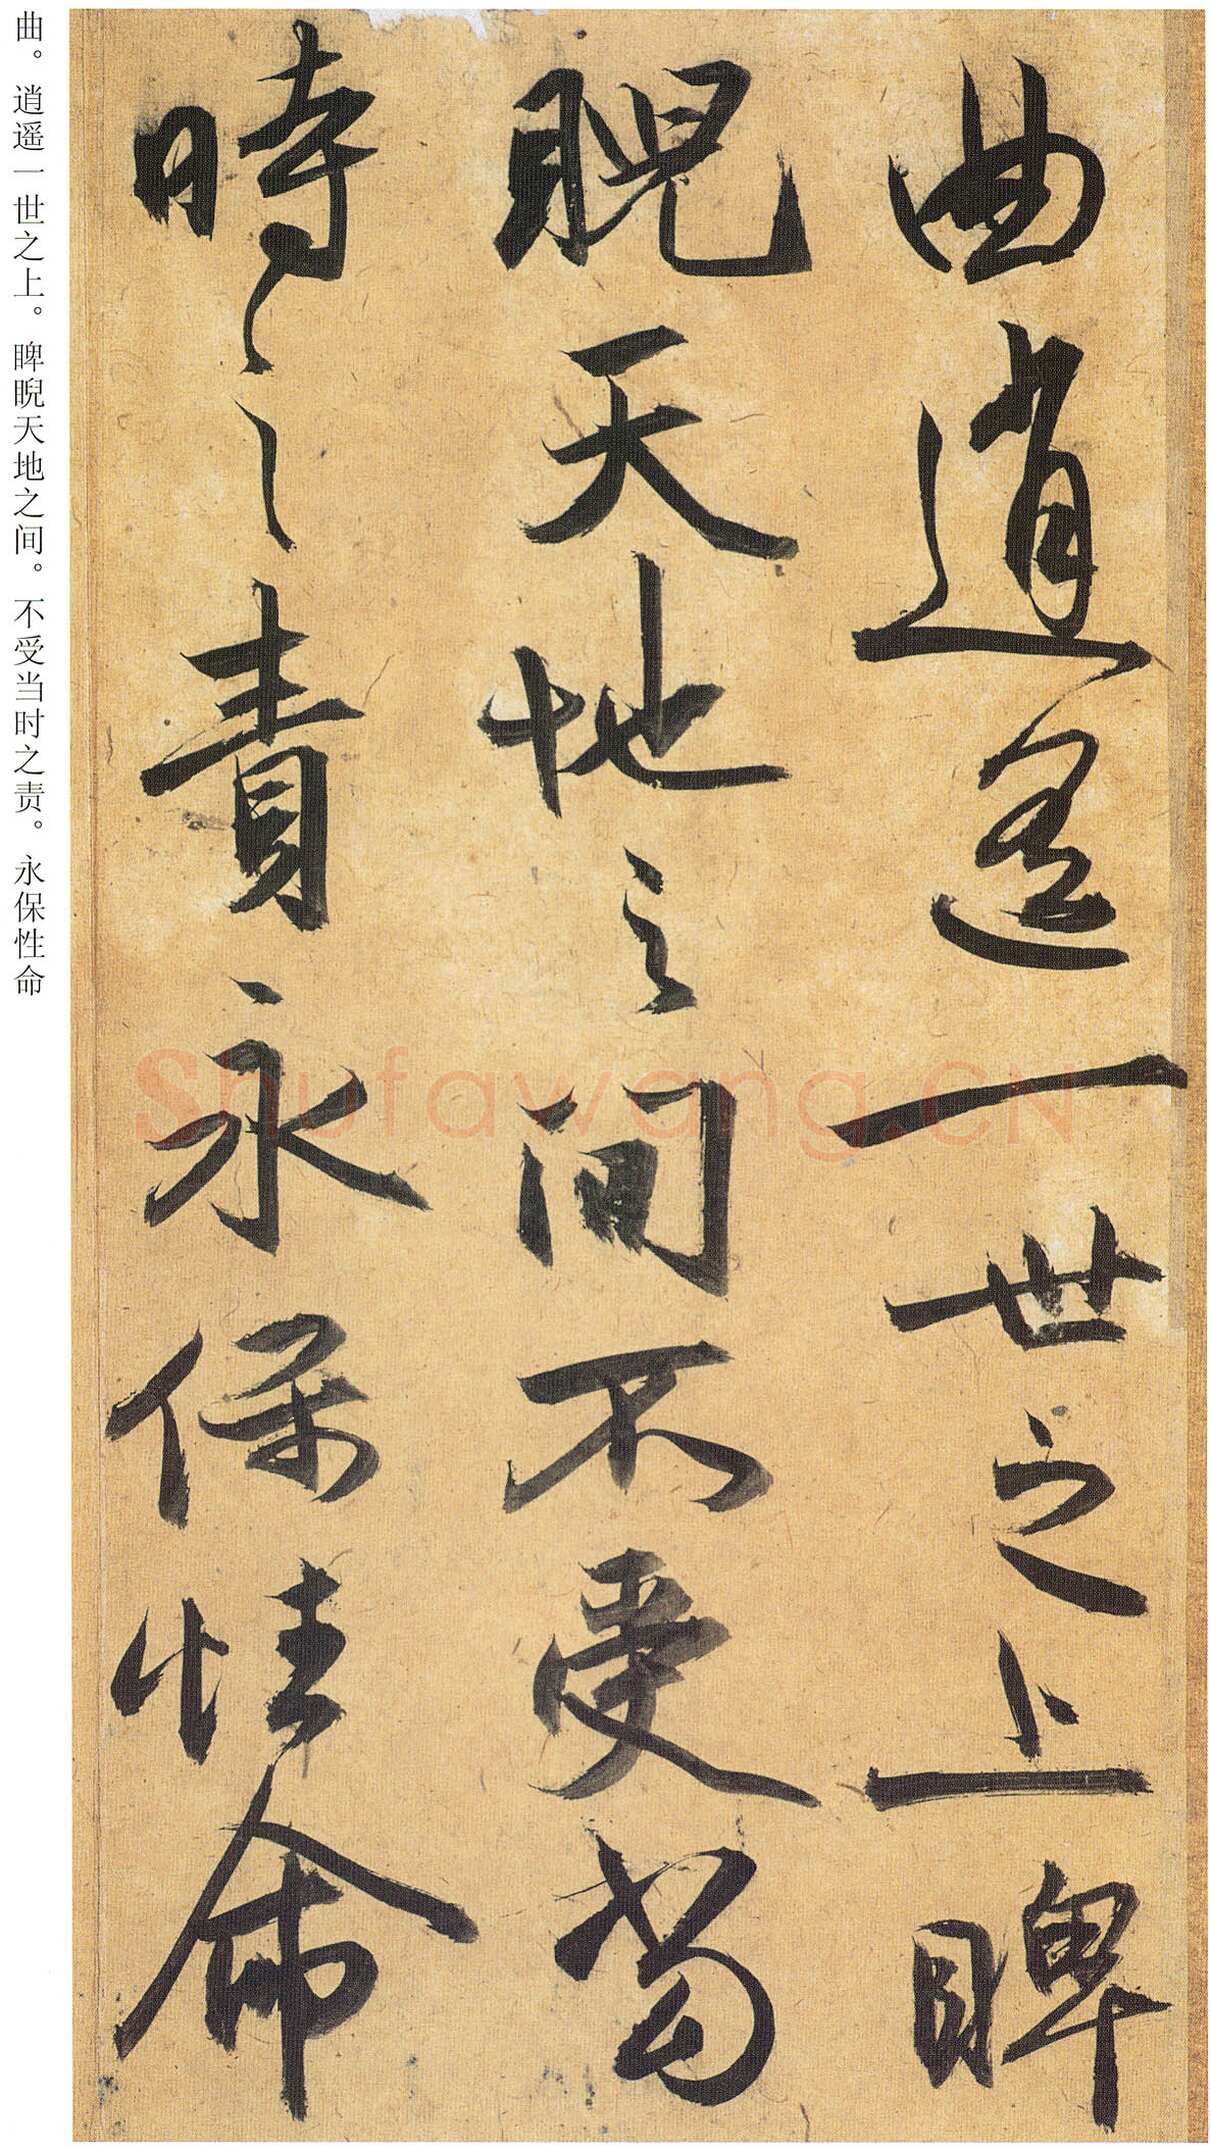 曲逍遥一世之上睥
睨天地之间不受当
時之責永保性命
曲。逍遥一世之上。睥睨天地之间。不受当时之责。永保性命
Shufawang.CN